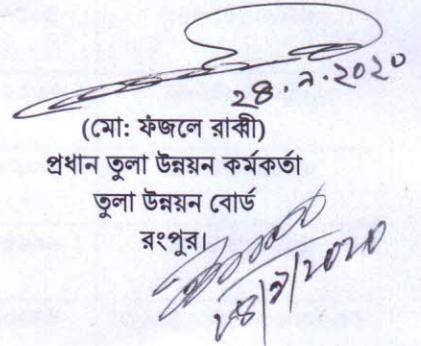 ২৪.৯.২০২০
(মো: ফজলে রাব্বী)
প্রধান তুলা উন্নয়ন কর্মকর্তা
তুলা উন্নয়ন বোর্ড
রংপুর।
২৪/৯/২০২০